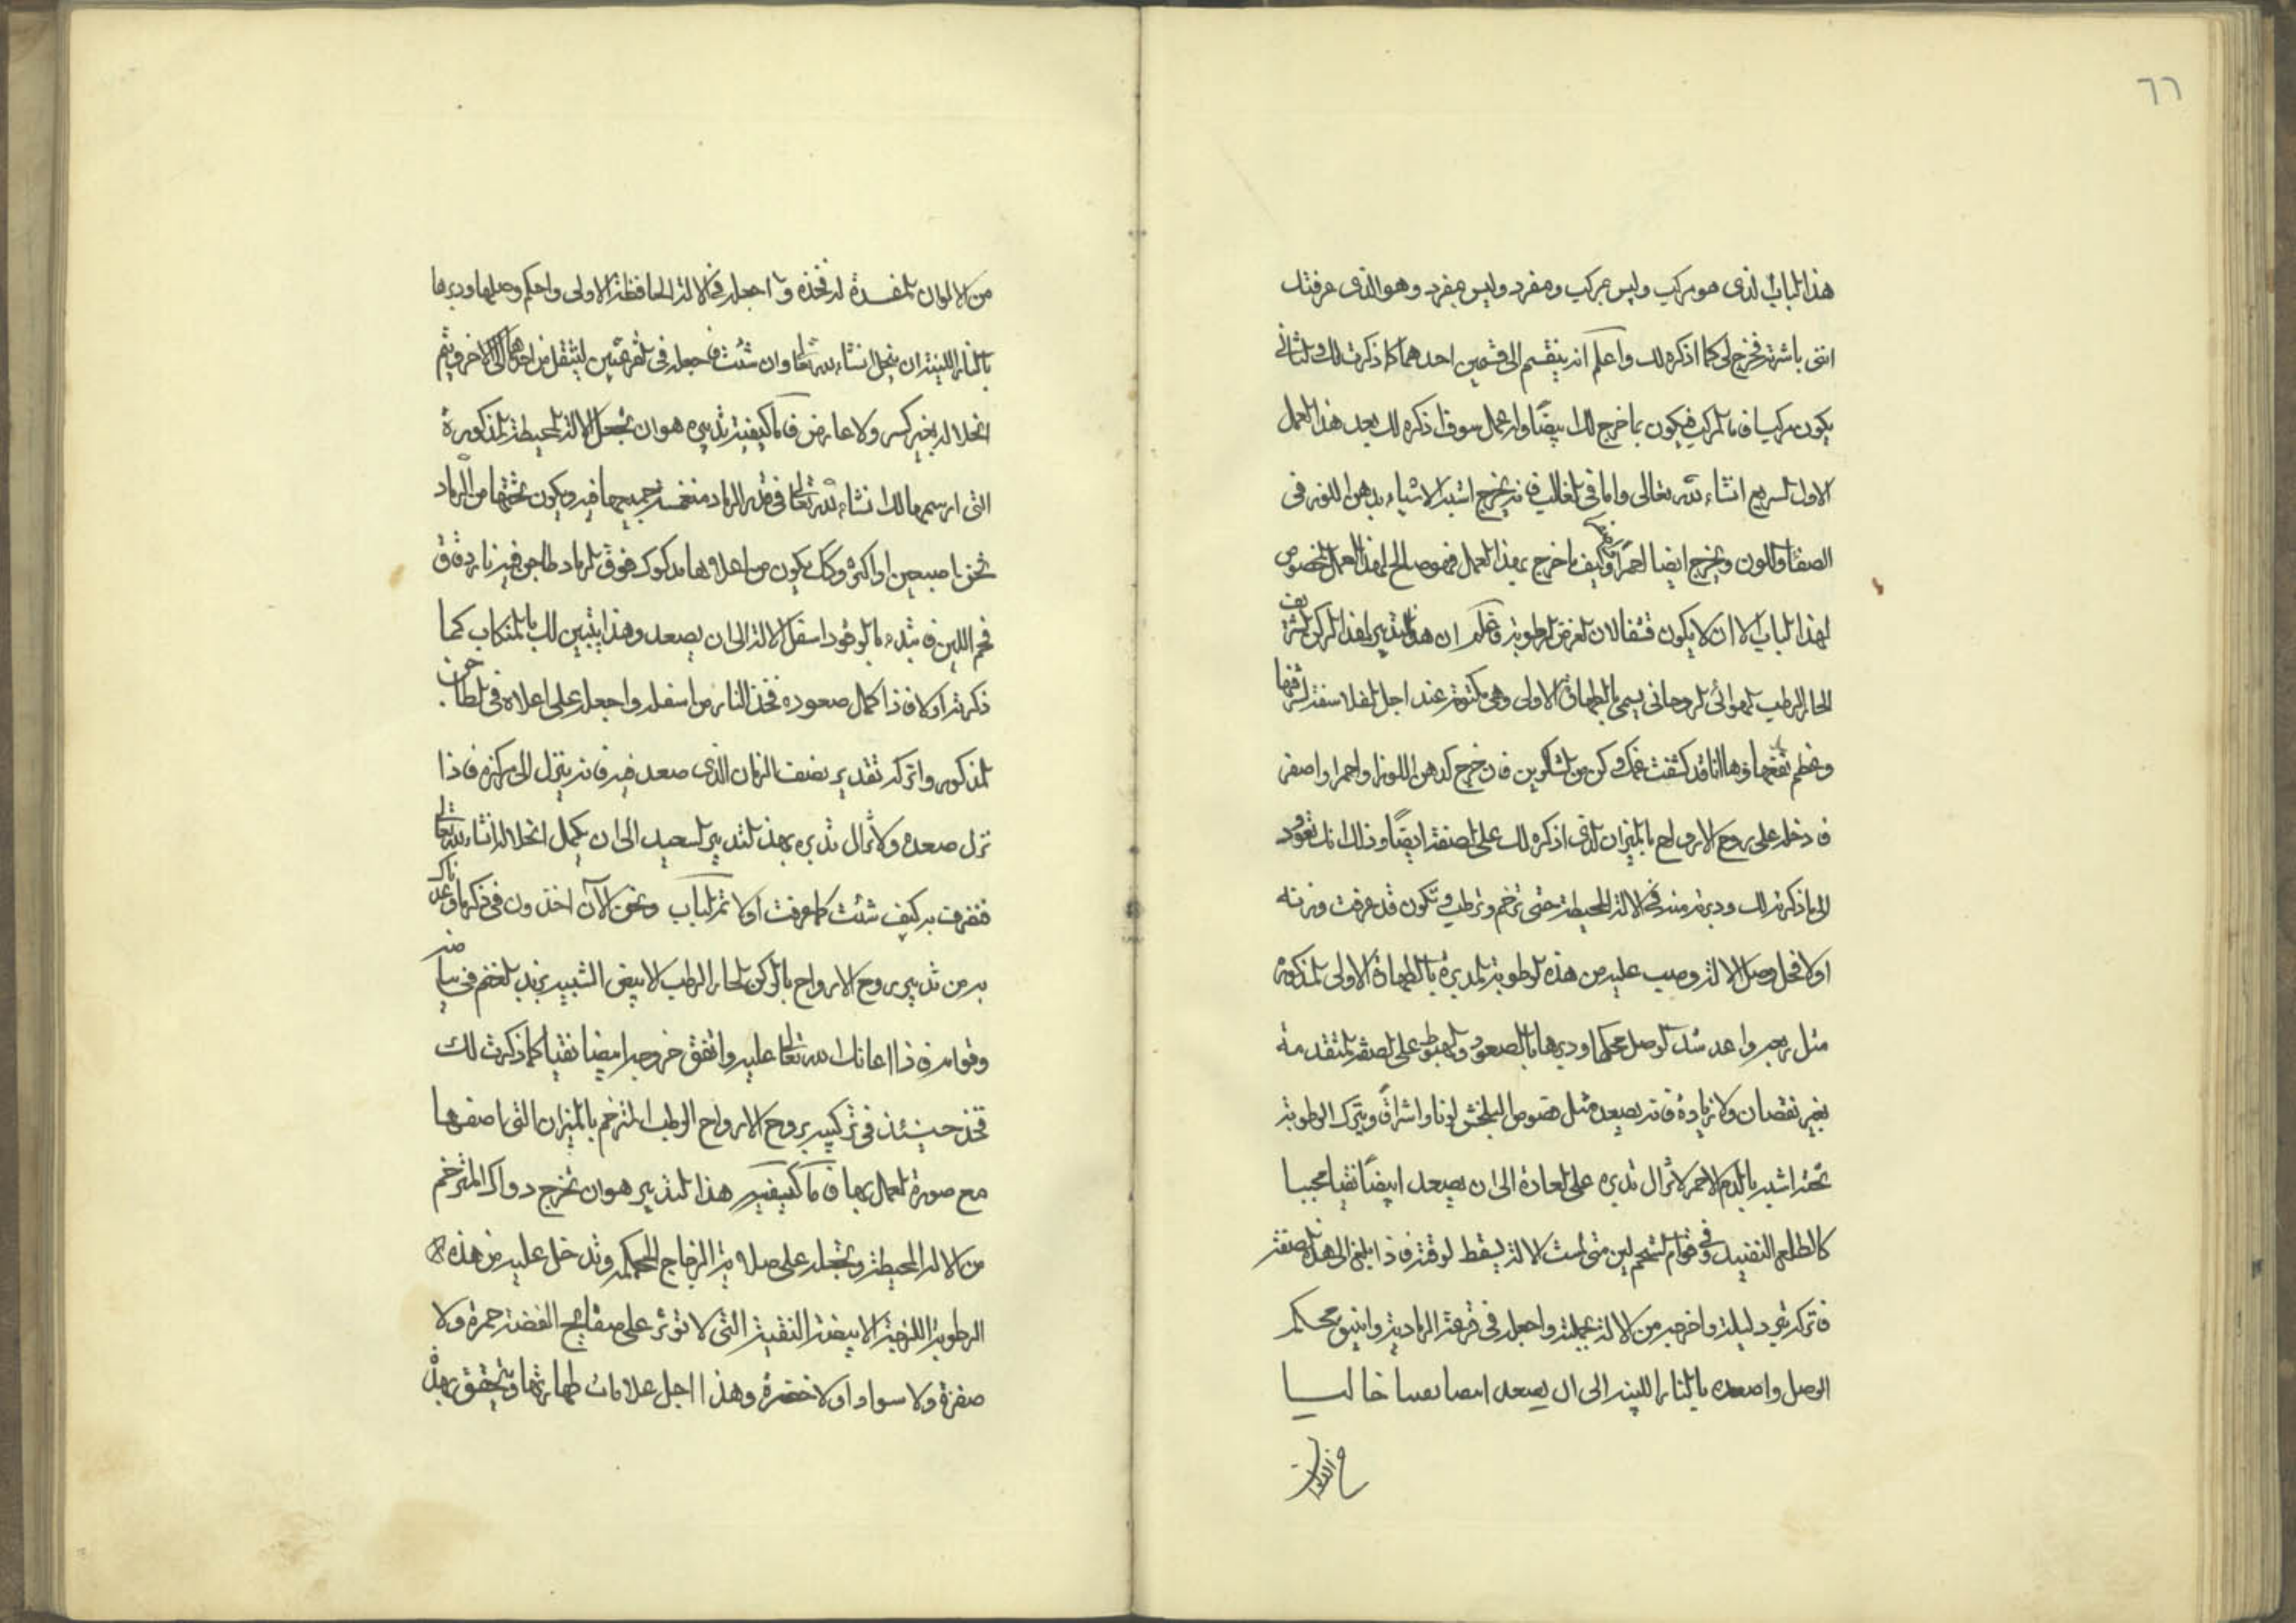 ٦٦
هذا الباب الذى هو مركب وليس بمركب ومفرد وليس بمفرد وهو الذى عرفتك
اننى باشرته فخرج لى كما اذكره لك واعلم انه ينقسم الى قسمين احدهما كما ذكرت لك والثانى
يكون مركبا فاما المركب فيكون ما خرج لك ابيضا وله عمل سوف اذكره لك بعد هذا العمل
الاول السريع انشاء الله تعالى واما فى الغالب فانه يخرج اشبه الاشياء بدهن اللوز فى
الصفاء واللون ويخرج ايضا احمرا وكيف ما خرج بهذا العمل فهو صالح لهذا العمل المخصوص
لهذا الباب الا ان لا يكون قشفا لان الغرض الرطوبة واعلم ان هذا التدبير لهذا الركن الشريف
الحار الرطب الهوائى الروحانى يسمى بالطهارة الاولى وهى مكتومة عند اجل الفلاسفة لشرفها
وعظم نفعها وها انا قد كشفت عنك وكن من الشاكرين فان خرج كدهن اللوز او احمرا واصفر
فادخله على روح الارواح بالميزان الذى اذكره لك على الصفة ايضا وذلك انك تعود
الى ما ذكرته لك ودبرته منه فى الالة المحيطة حتى ترخم وترطب وتكون قد عرفت وزنه
اولا فحل وصل الالة وصب عليه من هذه الرطوبة المدبرة بالطهارة الاولى المذكورة
مثل ربعه واعد شد الوصل محكما ودبرها بالصعود والهبوط على الصفة المتقدمة
بغير نقصان ولا زيادة فانه يصعد مثل فصوص البلخش لونا واشراقا ويترك الرطوبة
تحته اشبه بالدم الاحمر لا تزال تدبره على العادة الى ان يصعد ابيضا نقيا عجيبا
كالطلع النضيد وفى قوام الشحم لين متى امت الالة يسقط لوقته فاذا بلغ الى هذه الصفة
فاتركه تبرد ليلة واخرجه من الالة بجملته واجعله فى قرعة الرمادية وانبيق محكم
الوصل واصعده بالنار اللينة الى ان يصعد ابيضا نقيا خاليا
من الالوان
من الالوان المفسدة له فخذه واجعله فى الالة الحافظة الاولى واحكم وصلها ودبرها
بالنار اللينة ان ينحل انشاء الله تعالى وان شئت فاجعله فى القرعتين لينتقل من احدهما الى الاخرى ويتم
انحلاله بغير كسر ولا عارض فاما كيفية تدبيره هو ان تجعل الالة المحيطة المذكورة
التى ارسمها لك انشاء الله تعالى فى قدر الرماد منغمسة جميعها فيه ويكون تحتها من الرماد
ثخن اصبعين او اكثر وكذلك يكون من اعلاه ها مدكوك فوق الرماد طاجن فيه نار دقاق
فحم اللين فابتدء بالوقود اسفل الالة الى ان يصعد وهذا يتبين لك بالمنكاب كما
ذكرته اولا فاذا كمل صعوده فخذ النار من اسفله واجعله على اعلاه فى الطاجن
المذكور واتركه تقدير نصف الزمان الذى صعد فيه فانه ينزل الى مركزه فاذا
نزل صعده ولا تزال تدبره بهذا التدبير السعيد الى ان يكمل انحلاله انشاء الله تعالى
فتصرف به كيف شئت كما عرفت اولا تم الباب ونحن الآن اخذون فى ذكر ما وعدناك
به من تدبير روح الارواح بالركن الحار الرطب الابيض الشبيه بزبد الغنم فى بياضه
وقوامه فاذا اعانك الله تعالى عليه واتفق خروجه ابيضا نقيا كما ذكرت لك
فخذ حينئذ فى تركيبه بروح الارواح الرطب المترخم بالميزان التى اصفها
مع صورة العمل بها فاما كيفية هذا التدبير هو ان تخرج دواك المترخم
من الالة المحيطة وتجعله على صلاية الزجاج المحكمة وتدخل عليه من هذه
الرطوبة اللزجة الابيضة النقية التى لا تؤثر على صفايح الفضة حمرة ولا
صفرة ولا سوادا ولا خضرة وهذا اجل علامات طهارتها ويتحقق بهذا